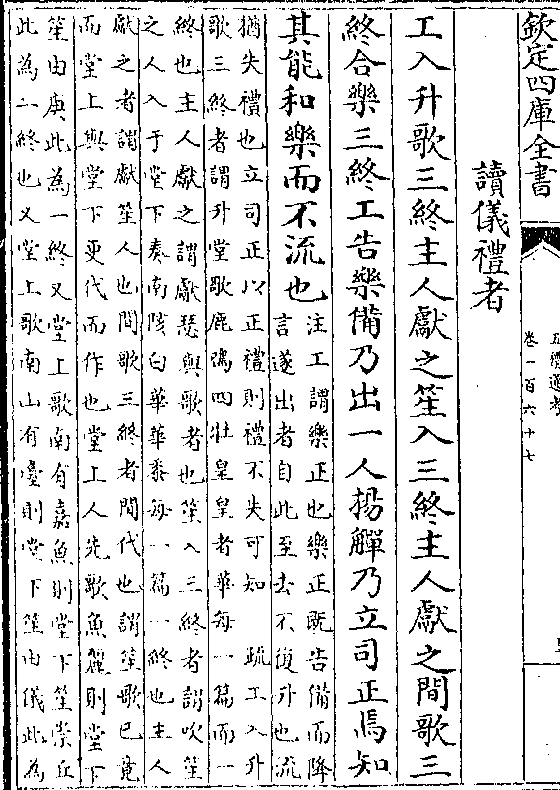 欽定四庫全書
五禮通考
卷一百六十七
讀儀禮者
工入升歌三終主人獻之笙入三終主人獻之間歌三
終合樂三終工告樂備乃出一人揚觶乃立司正焉知
其能和樂而不流也
注工謂樂正也樂正既告備而降
言遂出者自此至去不復升也流
猶失禮也立司正以正禮則禮不失可知
疏工入升
歌三終者謂升堂歌鹿鳴四牡皇皇者華每一篇而一
終也主人獻之謂獻瑟與歌者也笙入三終者謂吹笙
之人入于堂下奏南陔白華華黍每一篇一終也主人
獻之者謂獻笙人也間歌三終者間代也謂笙歌已竟
而堂上與堂下更代而作也堂上人先歌魚麗則堂下
笙由庚此為一終又堂上歌南有嘉魚則堂下笙崇丘
此為二終也又堂上歌南山有臺則堂下笙由儀此為